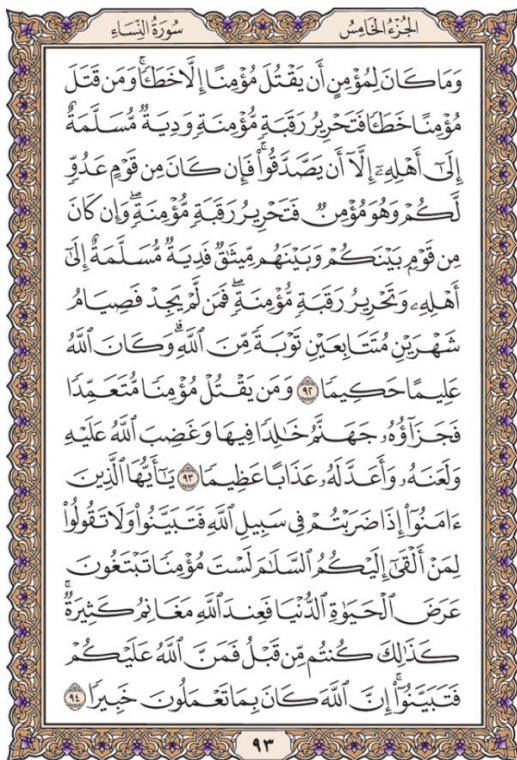 الجُزْءُ الخَامِسُ
سُورَةُ النِّسَاءِ
وَمَا كَانَ لِمُؤْمِنٍ أَن يَقْتُلَ مُؤْمِنًا إِلَّا خَطَـًٔاۚ وَمَن قَتَلَ
مُؤْمِنًا خَطَـًٔا فَتَحْرِيرُ رَقَبَةٍ مُّؤْمِنَةٍ وَدِيَةٌ مُّسَلَّمَةٌ
إِلَىٰٓ أَهْلِهِۦٓ إِلَّآ أَن يَصَّدَّقُوا۟ۚ فَإِن كَانَ مِن قَوْمٍ عَدُوٍّ
لَّكُمْ وَهُوَ مُؤْمِنٌ فَتَحْرِيرُ رَقَبَةٍ مُّؤْمِنَةٍۖ وَإِن كَانَ
مِن قَوْمٍۭ بَيْنَكُمْ وَبَيْنَهُم مِّيثَـٰقٌ فَدِيَةٌ مُّسَلَّمَةٌ إِلَىٰٓ
أَهْلِهِۦ وَتَحْرِيرُ رَقَبَةٍ مُّؤْمِنَةٍۖ فَمَن لَّمْ يَجِدْ فَصِيَامُ
شَهْرَيْنِ مُتَتَابِعَيْنِ تَوْبَةً مِّنَ ٱللَّهِۗ وَكَانَ ٱللَّهُ
عَلِيمًا حَكِيمًا ٩٢ وَمَن يَقْتُلْ مُؤْمِنًا مُّتَعَمِّدًا
فَجَزَآؤُهُۥ جَهَنَّمُ خَـٰلِدًا فِيهَا وَغَضِبَ ٱللَّهُ عَلَيْهِ
وَلَعَنَهُۥ وَأَعَدَّ لَهُۥ عَذَابًا عَظِيمًا ٩٣ يَـٰٓأَيُّهَا ٱلَّذِينَ
ءَامَنُوٓا۟ إِذَا ضَرَبْتُمْ فِى سَبِيلِ ٱللَّهِ فَتَبَيَّنُوا۟ وَلَا تَقُولُوا۟
لِمَنْ أَلْقَىٰٓ إِلَيْكُمُ ٱلسَّلَـٰمَ لَسْتَ مُؤْمِنًا تَبْتَغُونَ
عَرَضَ ٱلْحَيَوٰةِ ٱلدُّنْيَا فَعِندَ ٱللَّهِ مَغَانِمُ كَثِيرَةٌۚ
كَذَٰلِكَ كُنتُم مِّن قَبْلُ فَمَنَّ ٱللَّهُ عَلَيْكُمْ
فَتَبَيَّنُوٓا۟ۚ إِنَّ ٱللَّهَ كَانَ بِمَا تَعْمَلُونَ خَبِيرًا ٩٤
٩٣